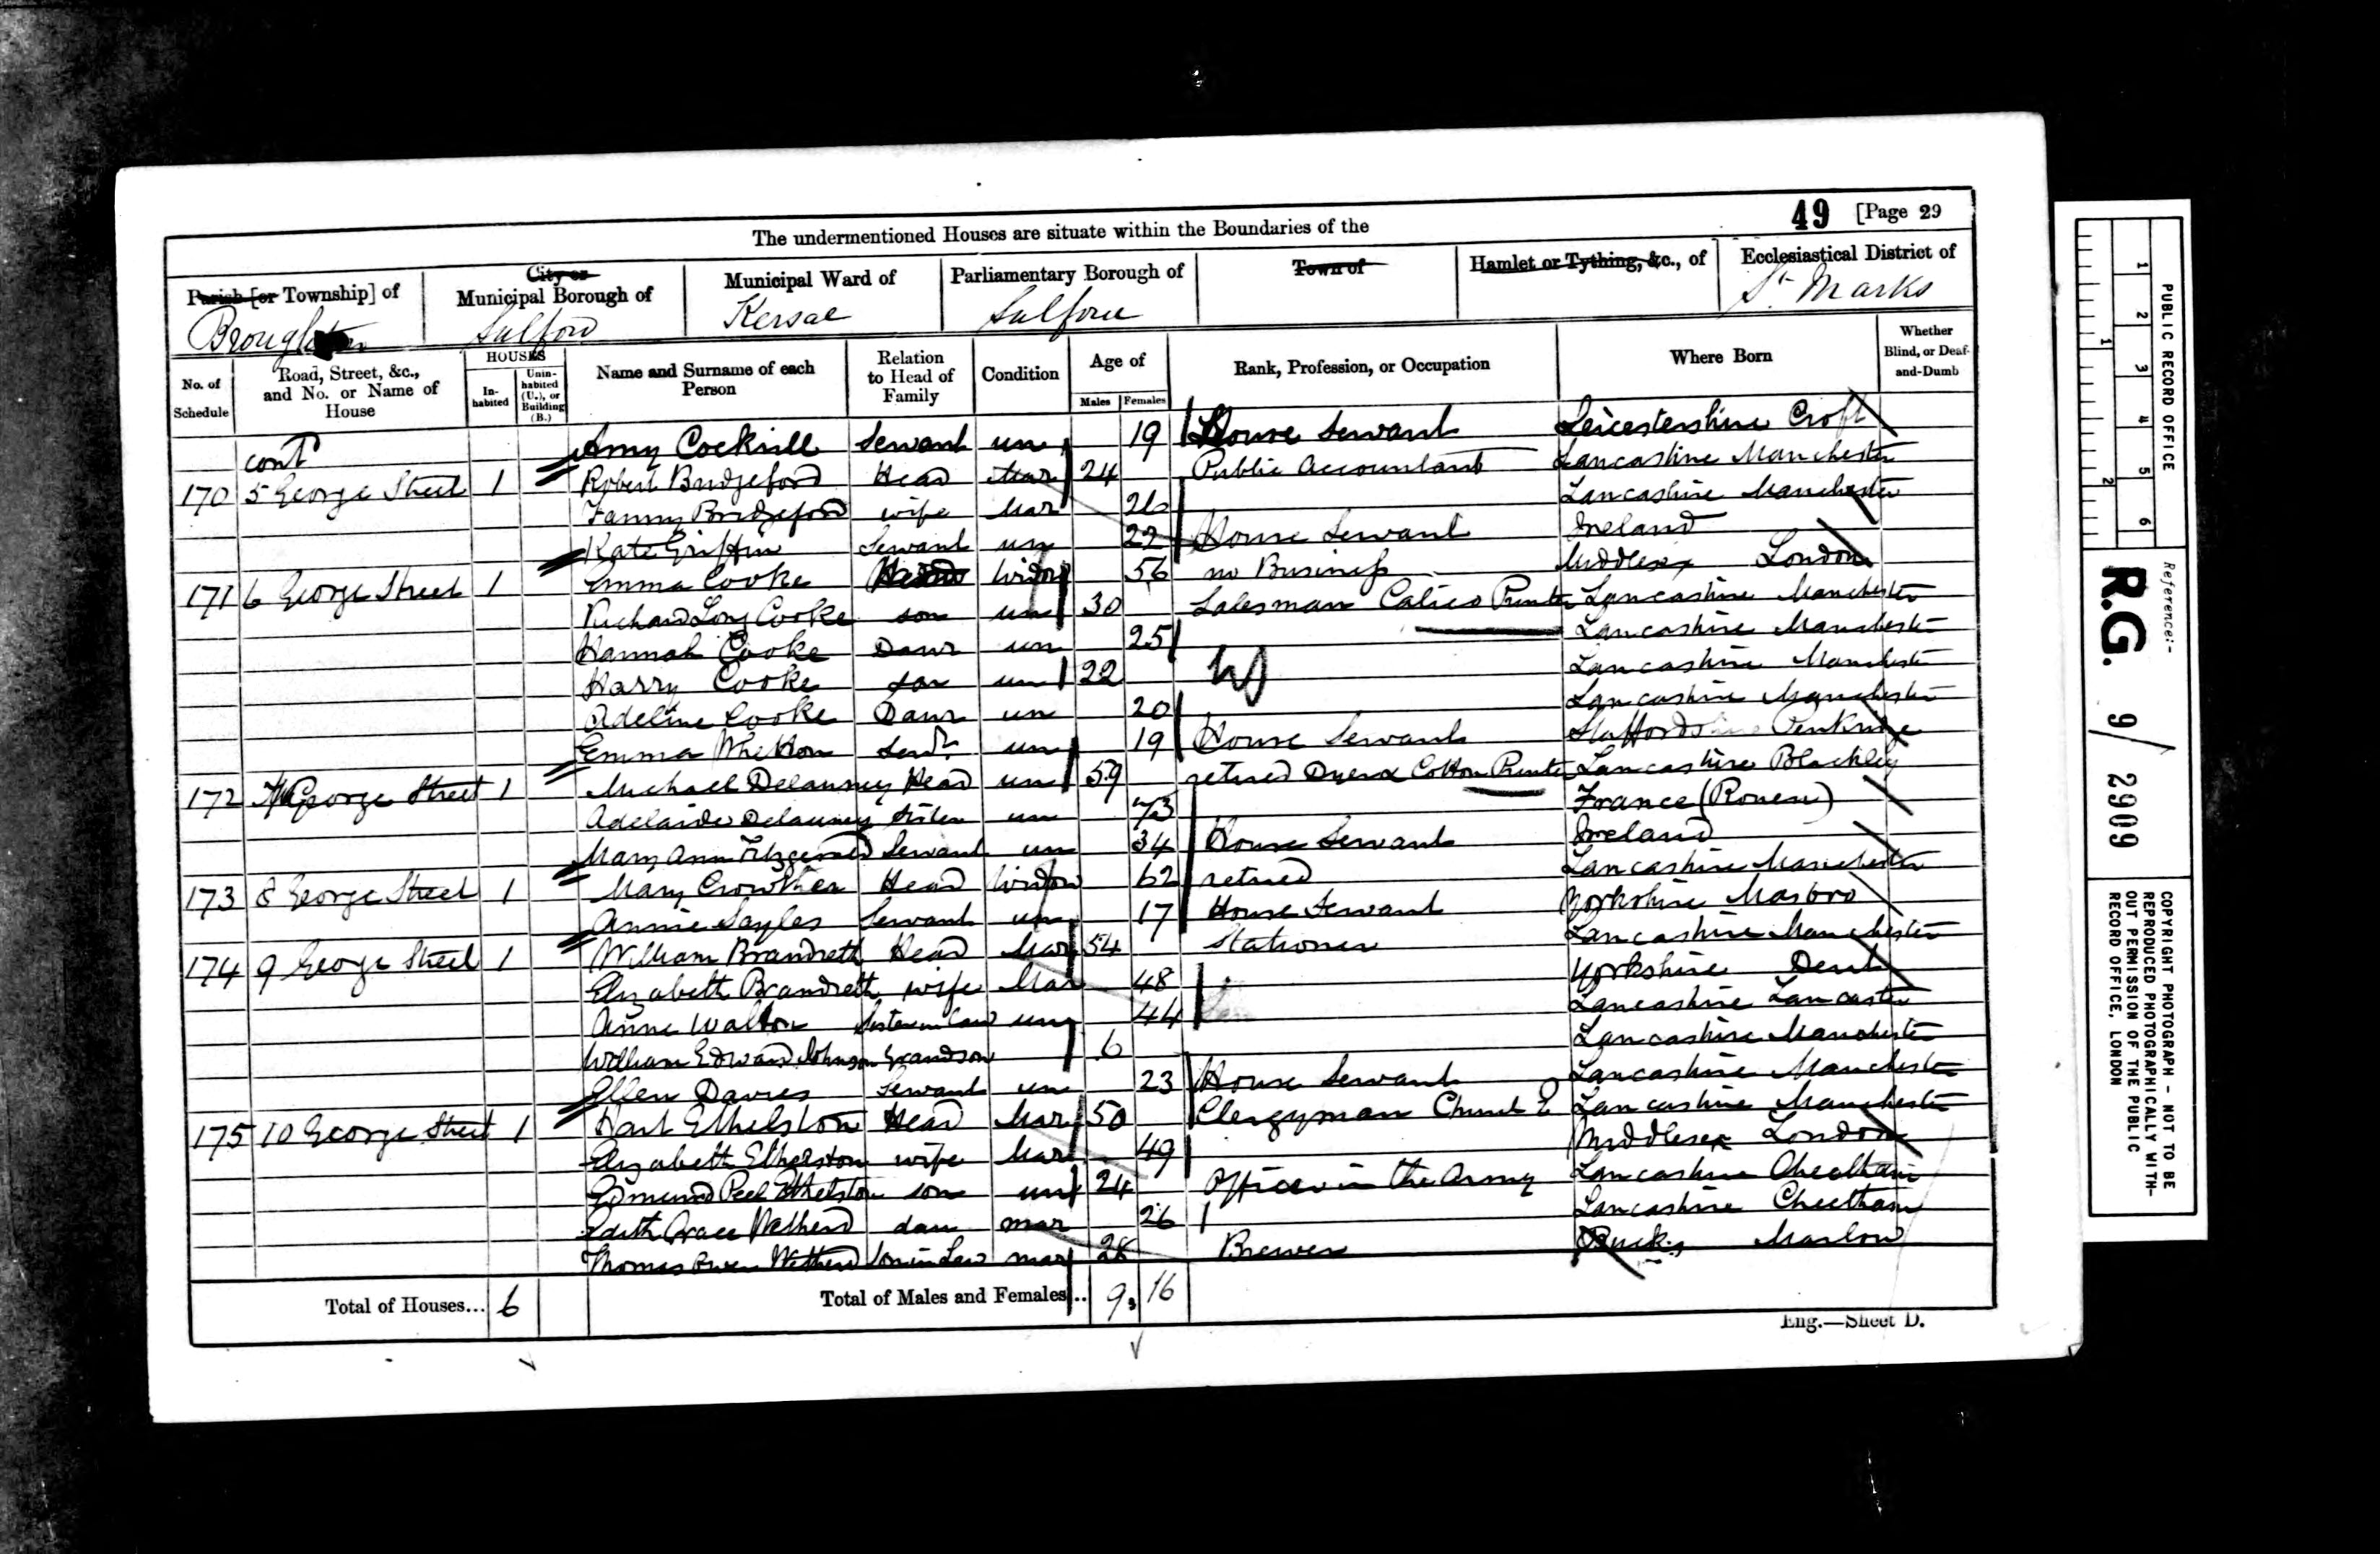 49 [Page 29
The undermentioned Houses are situate within the Boundaries of the
Parish [or Township] of
City or Municipal Borough of
Municipal Ward of
Parliamentary Borough of
Town of
Hamlet or Tything, &c., of
Ecclesiastical District of
Broughton Salford Kersal Salford St Marks
No. of Schedule
Road, Street, &c., and No. or Name of House
HOUSES
In-habited
Unin-habited (U.), or Building (B.)
Name and Surname of each Person
Relation to Head of Family
Condition
Age of
Males Females
Rank, Profession, or Occupation
Where Born
Whether Blind, or Deaf-and-Dumb
cont Amy Cockrill Servant un 19 House Servant Leicestershire Croft
170 5 George Street 1 Robert Bridgeford Head Mar 24 Public Accountant Lancashire Manchester
Fanny Bridgeford wife Mar 26 Lancashire Manchester
Kate Griffin Servant un 22 House Servant Ireland
171 6 George Street 1 Emma Cooke Head Widow 56 no Business Middlesex London
Richard Long Cooke son un 30 Salesman Calico Printer Lancashire Manchester
Hannah Cooke Daur un 25 Lancashire Manchester
Harry Cooke son un 22 Lancashire Manchester
Adeline Cooke Daur un 20 Lancashire Manchester
Emma Whetton Servt un 19 House Servant Staffordshire Penkridge
172 George Street 1 Michael Delauney Head un 59 retired Dyer & Cotton Printer Lancashire Blackley
Adelaide Delauney Sister un 73 France (Rouen)
Mary Ann Fitzgerald Servant un 34 House Servant Ireland
173 8 George Street 1 Mary Crowther Head Widow 62 retired Lancashire Manchester
Annie Sayles Servant un 17 House Servant Yorkshire Masbro
174 9 George Street 1 William Brandreth Head Mar 54 Stationer Lancashire Manchester
Elizabeth Brandreth wife Mar 48 Yorkshire Dent
Anne Walton Sister in Law un 44 Lancashire Lancaster
William Edward Johnson Grandson 6 Lancashire Manchester
Ellen Davies Servant un 23 House Servant Lancashire Manchester
175 10 George Street 1 Hart Ethelston Head Mar 50 Clergyman Church E Lancashire Manchester
Elizabeth Ethelston wife Mar 49 Middlesex London
Edmund Peel Ethelston son un 24 Officer in the Army Lancashire Cheetham
Edith Grace Wethered dau mar 26 Lancashire Cheetham
Thomas Owen Wethered Son in Law mar 28 Brewer Bucks Marlow
Total of Houses... 6 Total of Males and Females... 9 16
Eng.—Sheet D.
PUBLIC RECORD OFFICE
1 2 3 4 5 6
1 2
Reference:-
R.G. 9/2909
COPYRIGHT PHOTOGRAPH - NOT TO BE
REPRODUCED PHOTOGRAPHICALLY WITH-
OUT PERMISSION OF THE PUBLIC
RECORD OFFICE, LONDON